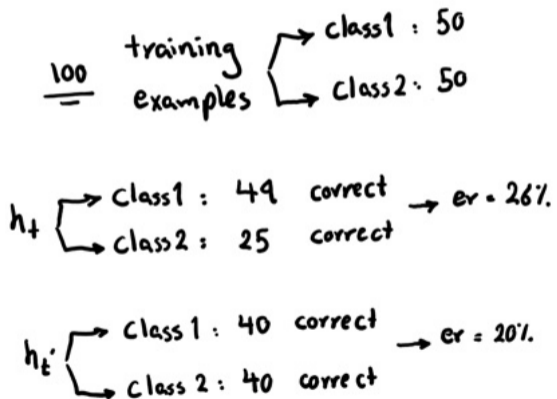 100 training examples
class1 : 50
class2 : 50
ht
class1 : 49 correct
class2 : 25 correct
→ er = 26%
ht'
class 1 : 40 correct
class 2 : 40 correct
→ er = 20%